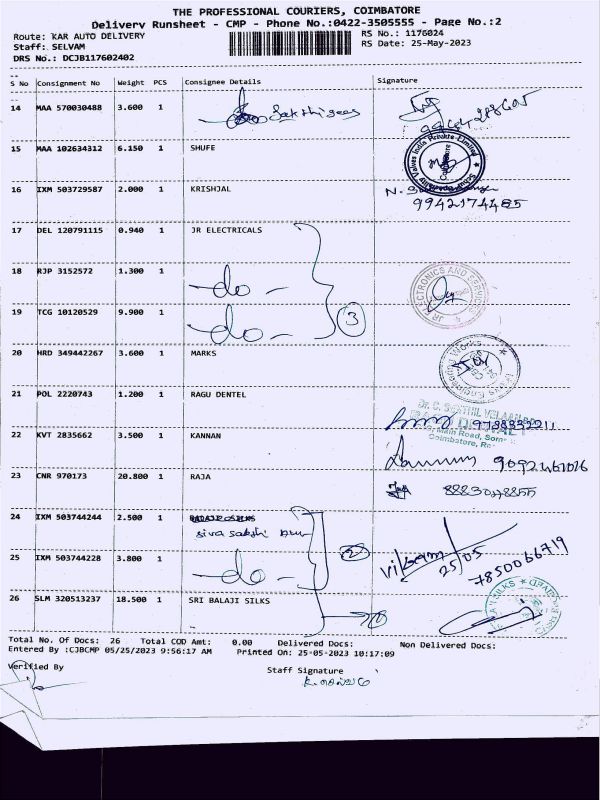 THE PROFESSIONAL COURIERS, COIMBATORE
Delivery Runsheet - CMP - Phone No.:0422-3505555 - Page No.:2
Route: KAR AUTO DELIVERY RS No.: 1176024
Staff: SELVAM RS Date: 25-May-2023
DRS No.: DCJB117602402
S No Consignment No Weight PCS Consignee Details Signature
14 MAA 570030488 3.600 1
15 MAA 102634312 6.150 1 SHUFE
16 IXM 503729587 2.000 1 KRISHJAL
9942174485
17 DEL 120791115 0.940 1 JR ELECTRICALS
18 RJP 3152572 1.300 1 -do-
19 TCG 10120529 9.900 1 -do- 3
20 HRD 349442267 3.600 1 MARKS
21 POL 2220743 1.200 1 RAGU DENTEL
9788832211
22 KVT 2835662 3.500 1 KANNAN
23 CNR 970173 20.800 1 RAJA
24 IXM 503744244 2.500 1
siva sakthi
25 IXM 503744228 3.800 1 -do- 2 Vikram 25/05 7850066719
26 SLM 320513237 18.500 1 SRI BALAJI SILKS
Total No. Of Docs: 26 Total COD Amt: 0.00 Delivered Docs: Non Delivered Docs:
Entered By :CJBCMP 05/25/2023 9:56:17 AM Printed On: 25-05-2023 10:17:09
Verified By Staff Signature